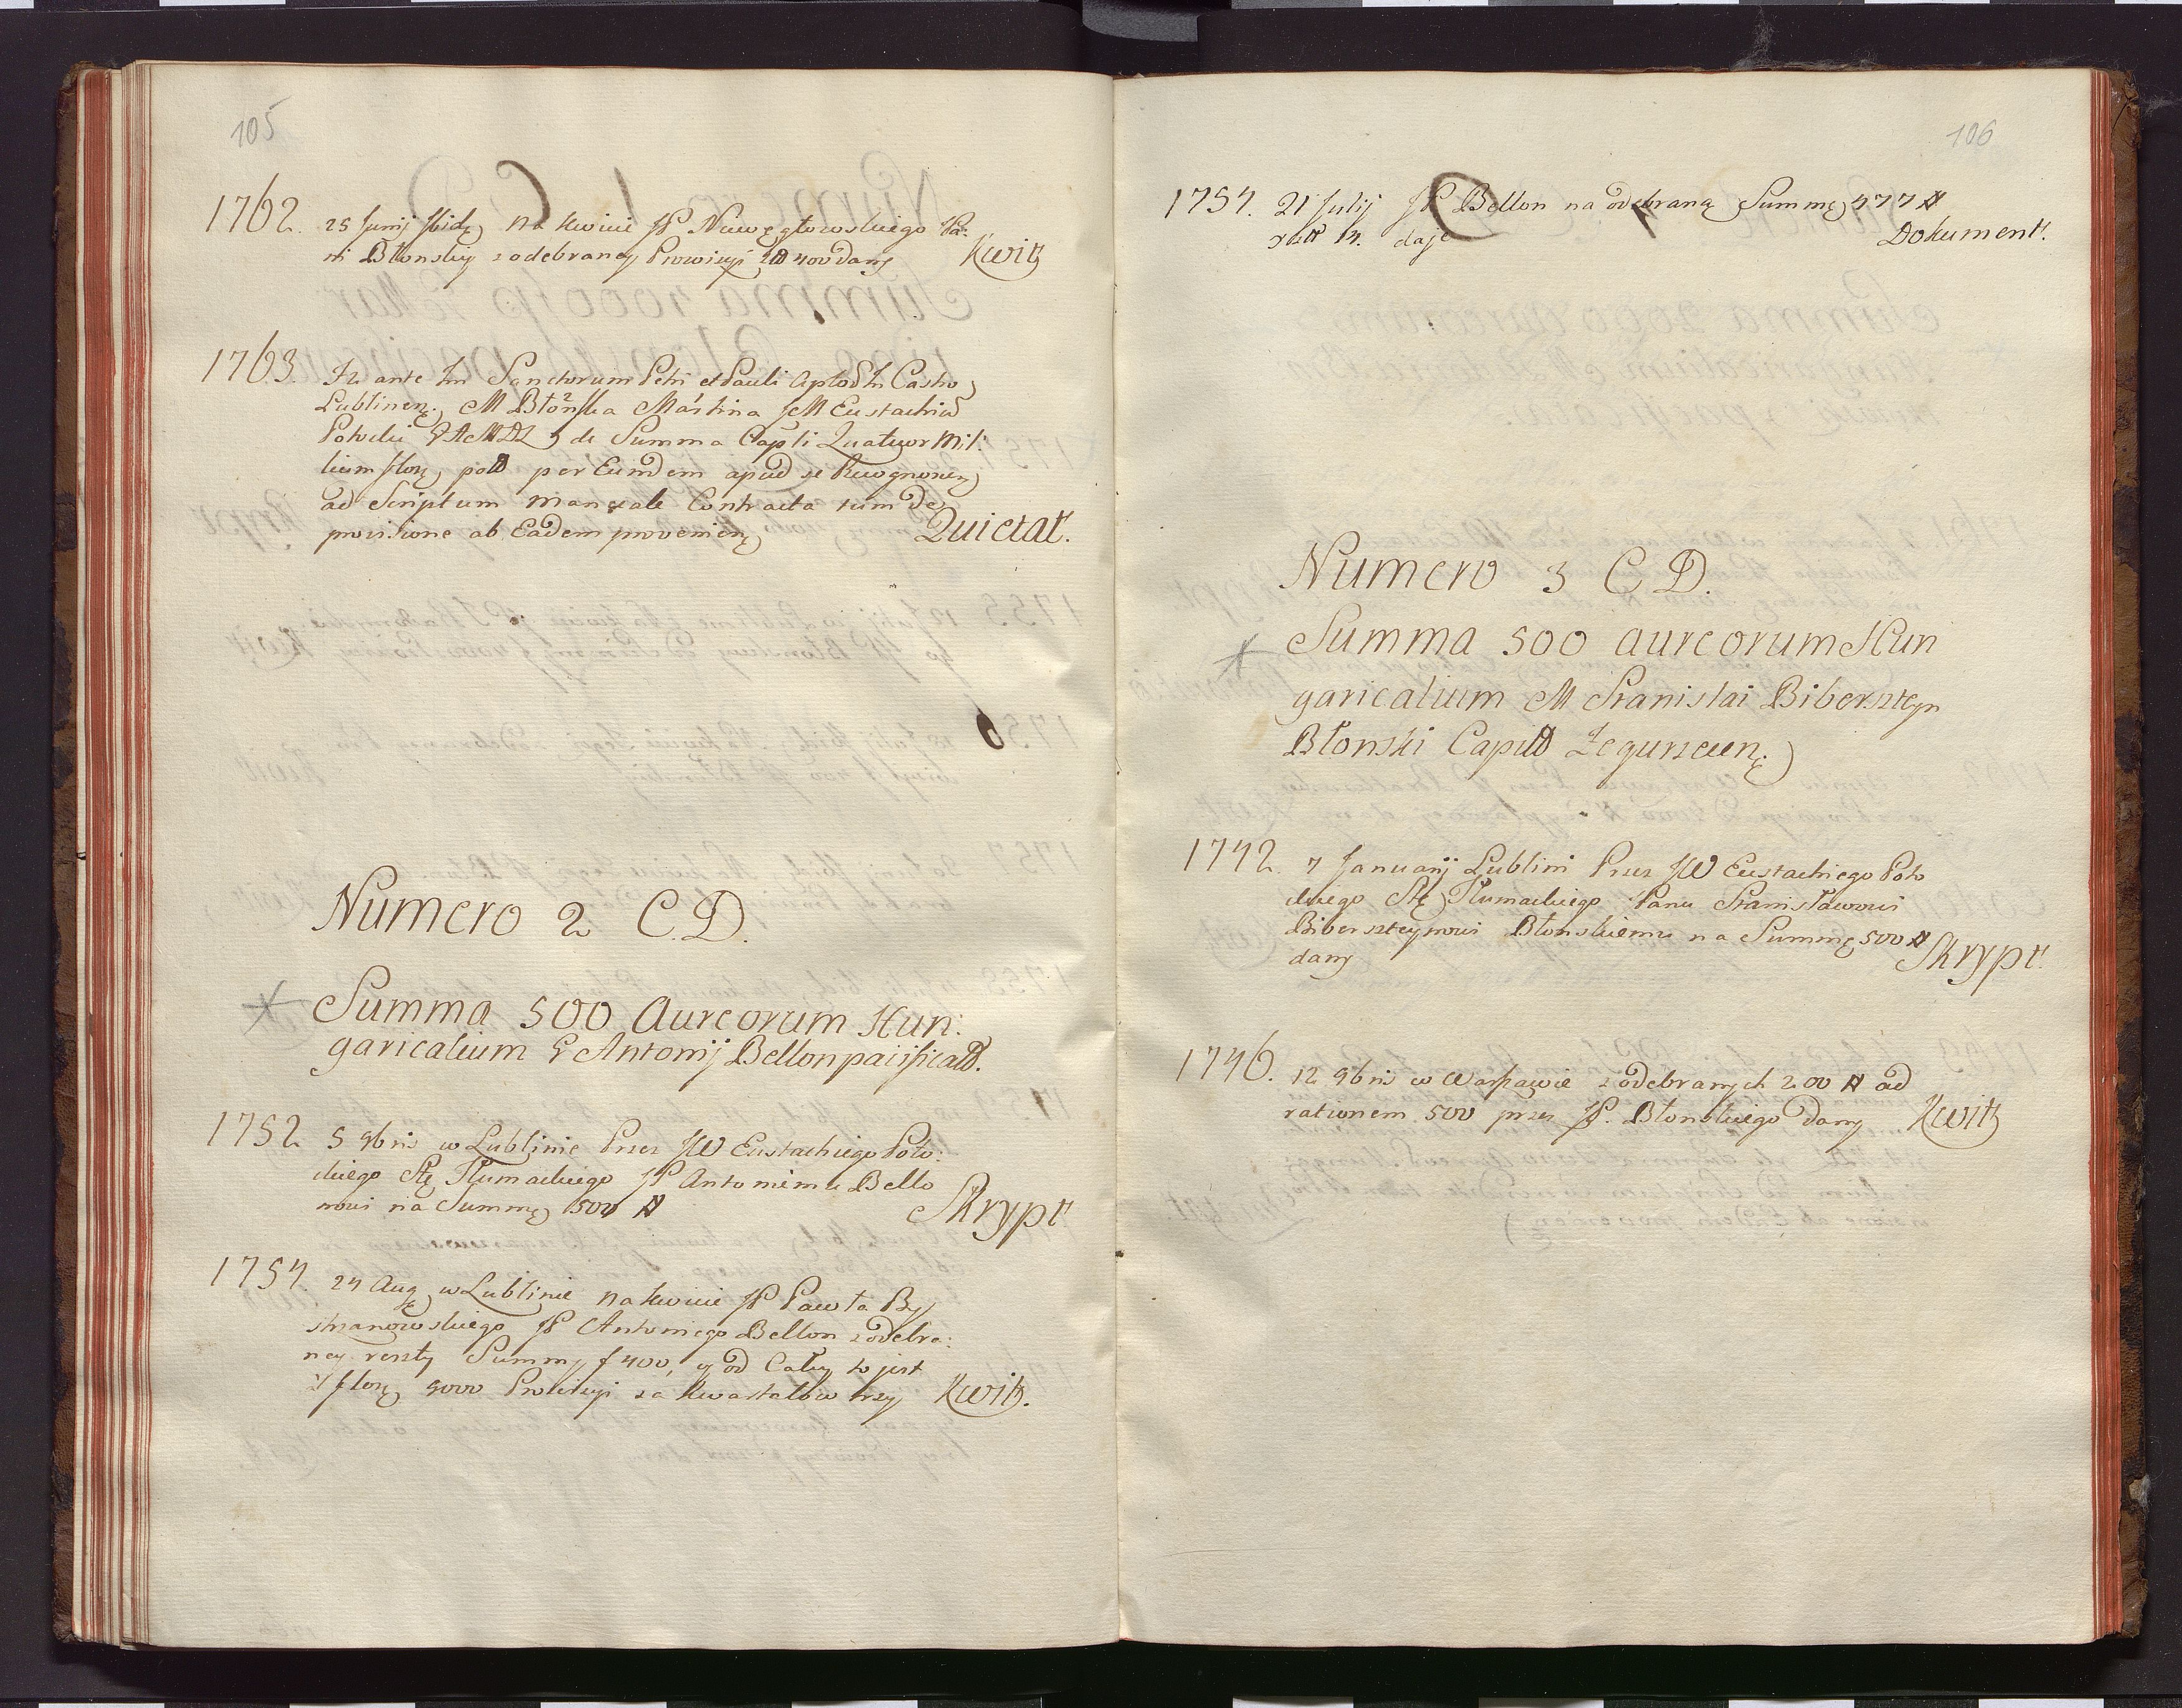 105
1762. 25 Junij Ibidę Na kwicie JP Niewęgłowskiego Pa:
ni Błonskiy z odebraney Prowizyi 400 dany Kwit
1763. Fr ante Fm Sanctorum Petri et Pauli Castro
Lublinen. M Błońska Martina JM Eustachiū
Potocki de Summa Capli Quatuor Mil:
lium flor. per Eumdem apud se Recognoscen
ad Scriptum manuale Contracta tum de
provisione ab Eadem provenien Quietat.
Numero 2 C.D.
Summa 500 Aureorum Hun:
garicalium G Antonij Bellon pacificata.
1752 5 9bris w Lublinie Przez JW Eustachiego Poto:
ckiego Stę Tłumackiego JP Antoniemu Bello
nowi na Summę 500 # Skrypt
1754. 24 Aug w Lublinie na kwicie JP Pawła By
strzanowskiego JP Antoniego Bellon z odebra:
ney reszty Summy f 400, y od Całey to jest
flor. 9000 Prowizyi za kwartałow trzy Kwit.
106
1754. 21 Julij JP Bellon na odebraną Summę 477 #
daje Dokument.
Numero 3 C D.
Summa 500 aureorum Hun
garicalium M Stanislai Biberszteyn
Błonski
1742. 7 Januarij Lublini Przez JW Eustachiego Poto
ckiego Stę Tłumackiego Panu Stanisławowi
Biberszteynowi Błonskiemu na Summę 500 #
dany Skrypt.
1746. 12 9bris w Warszawie z odebranych 200 # ad
rationem 500 przez JP. Błonskiego dany Kwit